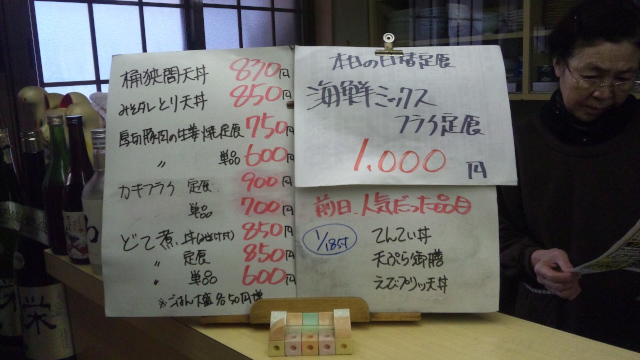 桶狭間天丼 870円
みそダレとり天丼 850円
厚切豚肉の生姜焼定食 750円
〃 単品 600円
カキフライ 定食 900円
単品 700円
どて煮 丼
850円
〃 定食 850円
〃 単品 600円
※ごはん大盛各50円増
本日の日替定食
海鮮ミックス
フライ定食
1,000円
前日、人気だった品目
てんてい丼
天ぷら御膳
えびプリッ天丼
栄